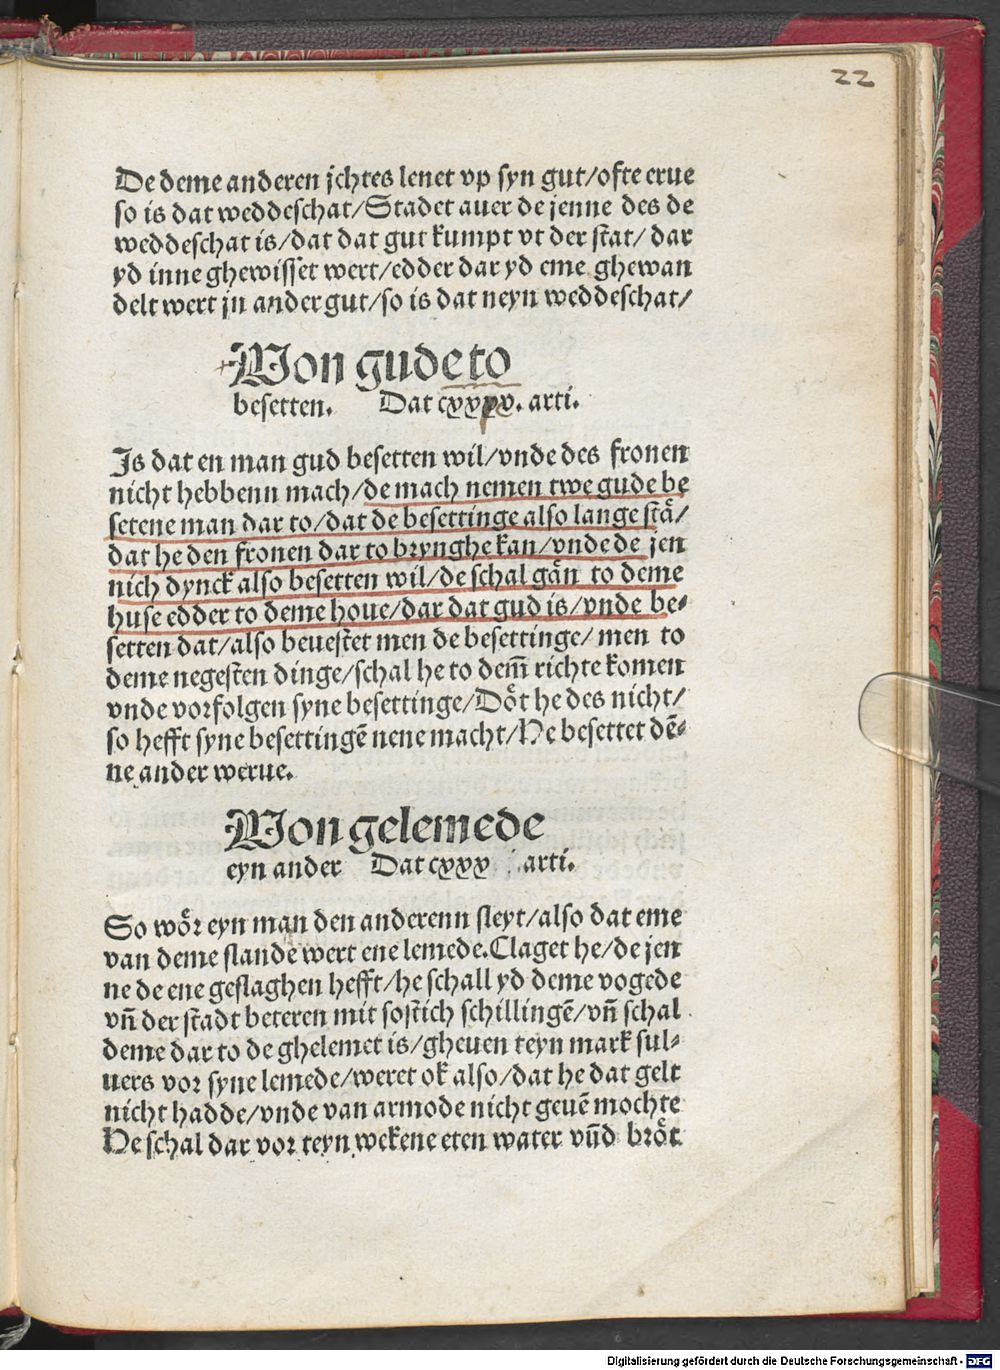 22
De deme anderen jchtes lenet vp syn gut/ofte erue
so is dat weddeschat/Stadet auer de jenne des de
weddeschat is/dat dat gut kumpt vt der stat/ dar
yd inne ghewisset wert/edder dar yd eme ghewan
delt wert jn ander gut/so is dat neyn weddeschat/
Von gude to
besetten. Dat cxxxv. arti.
Is dat en man gud besetten wil/vnde des fronen
nicht hebbenn mach/de mach nemen twe gude be
setene man dar to/dat de besettinge also lange stā/
dat he den fronen dar to brynghe kan/vnde de jen
nich dynck also besetten wil/de schal gān to deme
huse edder to deme houe/dar dat gud is/vnde be⸗
setten dat/also beuestet men de besettinge/men to
deme negesten dinge/schal he to dem̄ richte komen
vnde vorfolgen syne besettinge/Döt he des nicht/
so hefft syne besettingē nene macht/He besettet dē⸗
ne ander werue.
Von gelemede
eyn ander Dat cxxx arti.
So wör eyn man den anderenn sleyt/also dat eme
van deme slande wert ene lemede.Claget he/de jen
ne de ene geslaghen hefft/he schall yd deme vogede
vn̄ der stadt beteren mit sostich schillingē/vn̄ schal
deme dar to de ghelemet is/gheuen teyn mark sul⸗
uers vor syne lemede/weret ok also/dat he dat gelt
nicht hadde/vnde van armode nicht geuē mochte
He schal dar vor teyn wekene eten water vn̄d bröt
Digitalisierung gefördert durch die Deutsche Forschungsgemeinschaft - DFG